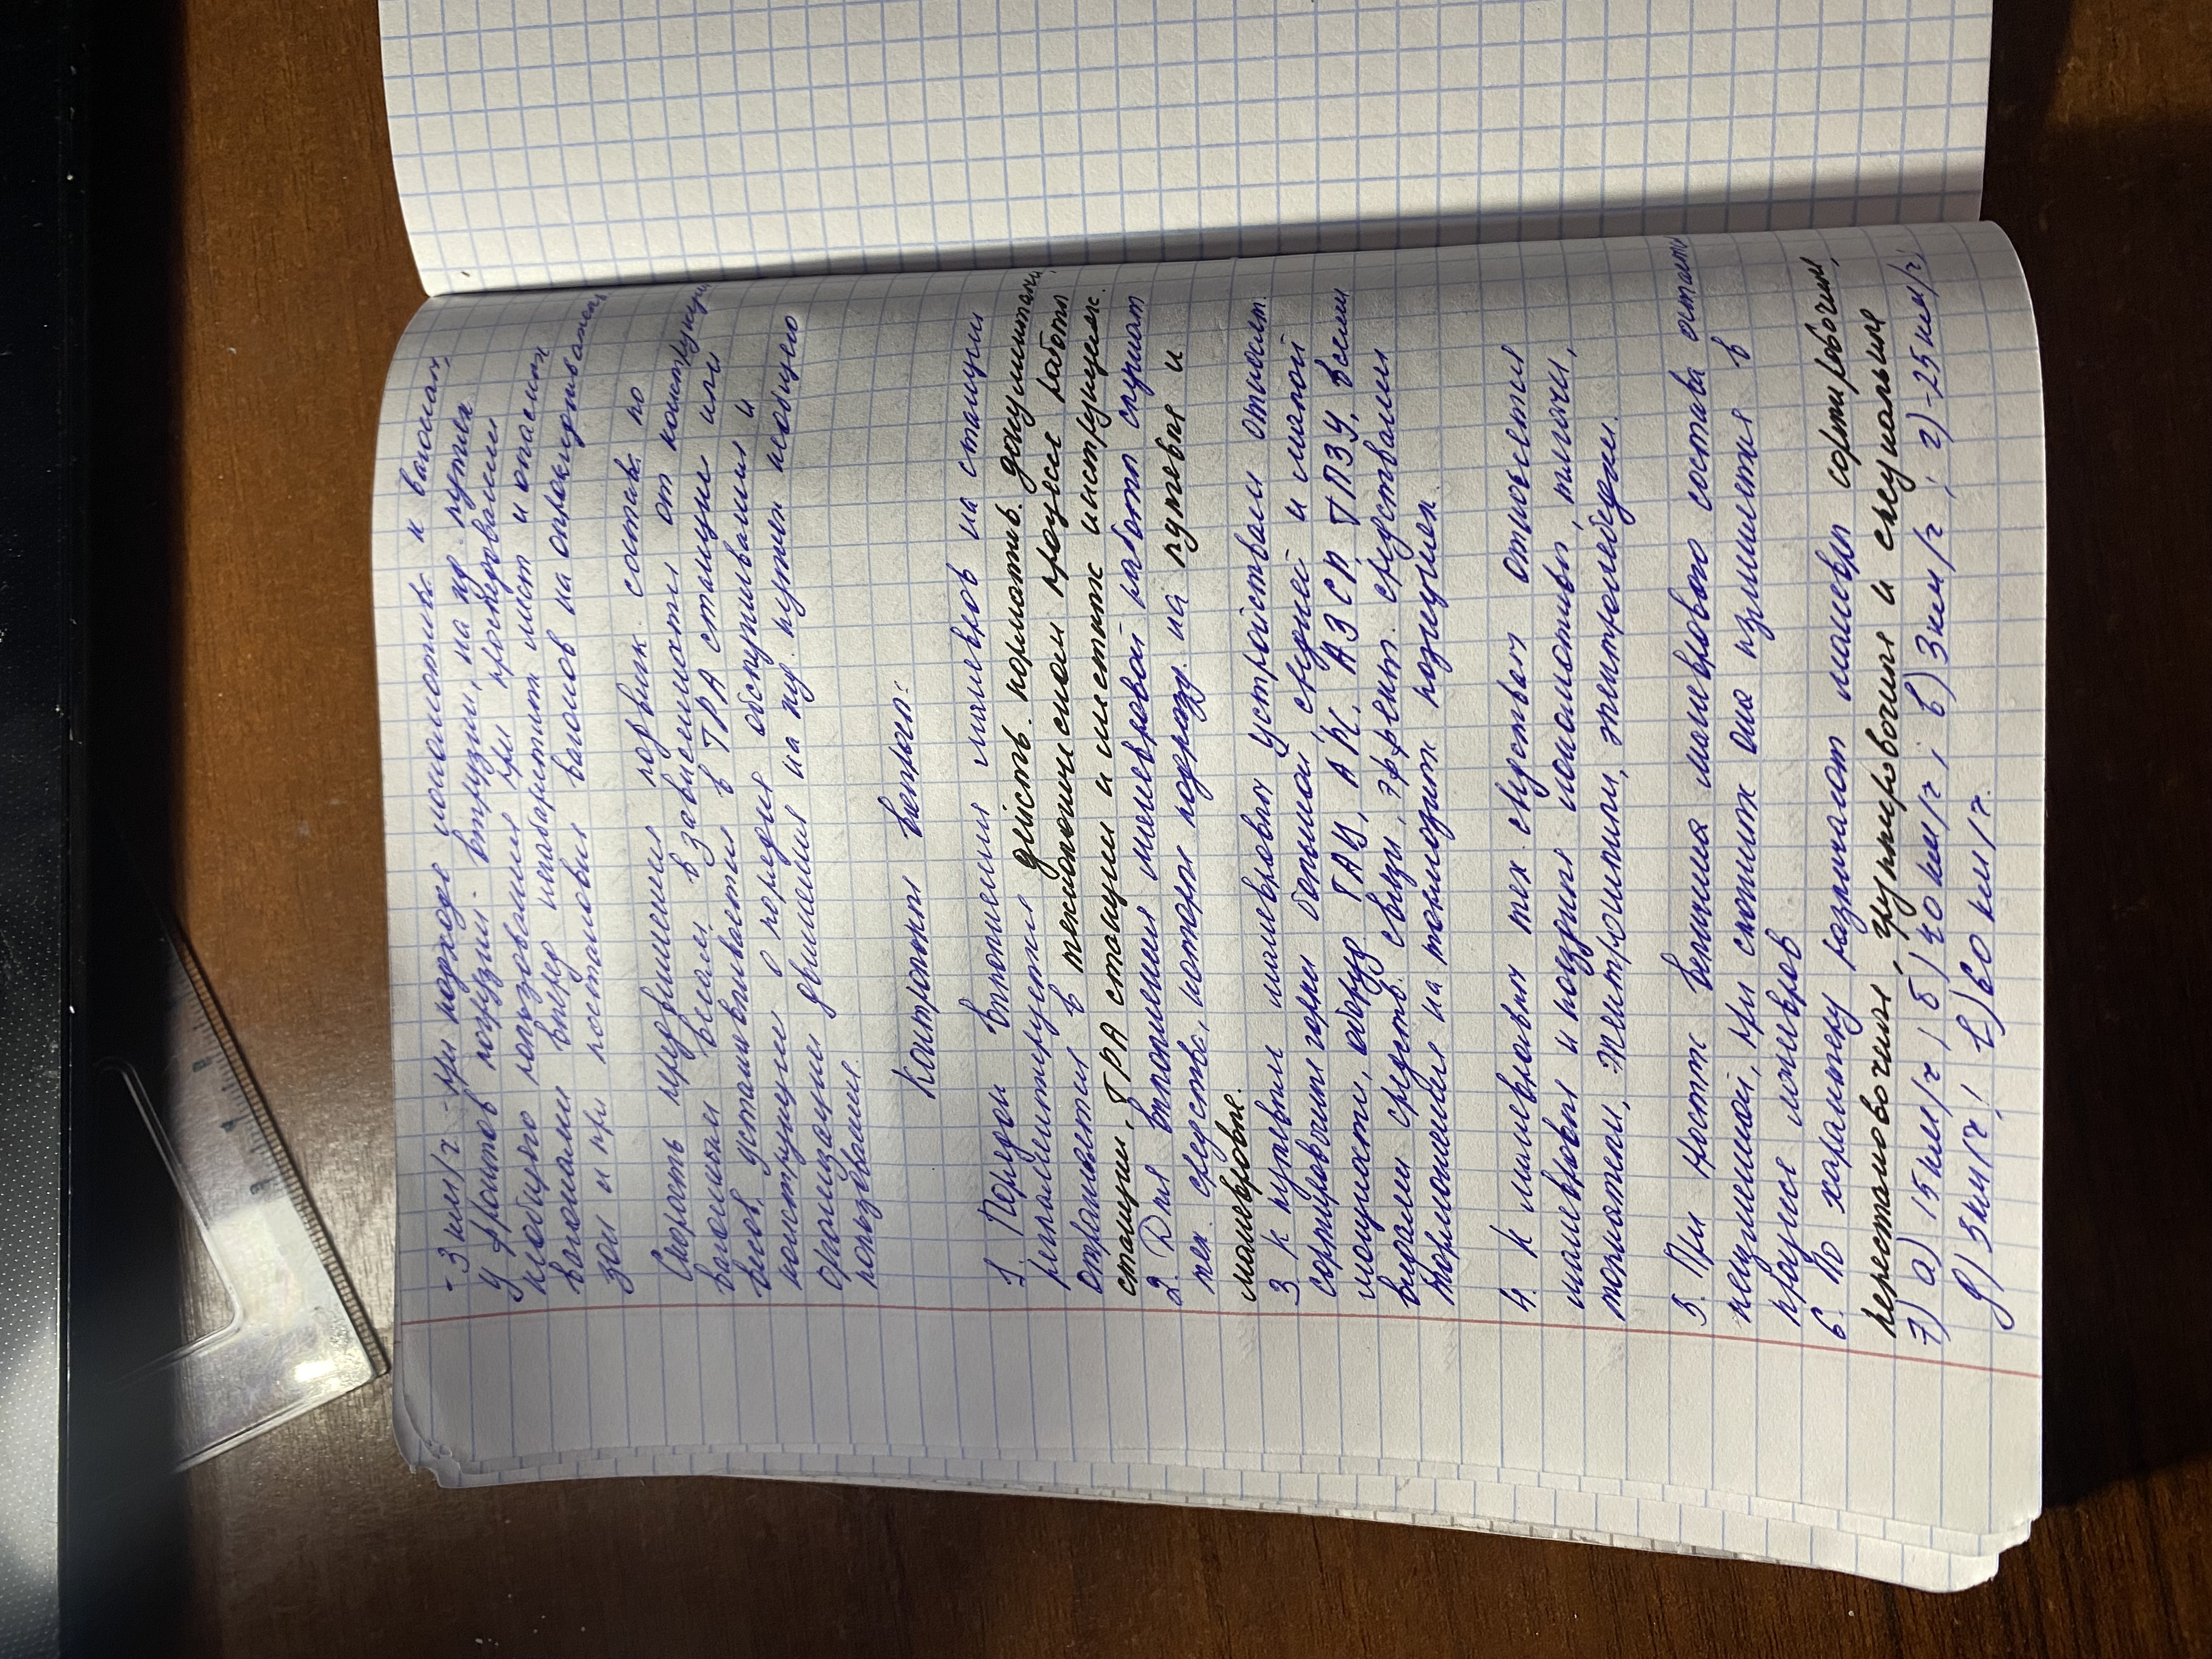 - 3 км/ч - при подходе локомотива к вагонам,
у фронтов погрузки. выгрузки, на пу путях
необщего пользования при проследовании
вагонами вперед негабаритн мест и опасных
зон и при постановке вагонов на опрокидыватель
Скорость передвижения подвиж. состава. по
вагонным весам. в зависимости от конструкции
весов. устанавливается в ТРА станции или
инструкции о порядке обслуживания и
организации движения на пу. путях необщего
пользования.
Контрольн вопрос:
1. Порядок выполнения маневров на станции
регламентируется действ. норматив. документами,
отражается в технологическом процессе работы
станции, ТРА станции и местных инструкциях.
2. Для выполнения маневровой работы служат
тех. средства, которые подразд. на путевые и
маневровые.
3. К путевым маневровым устройствам относят.
сортировочные горки большой средней и малой
мощности, оборуд ГАЦ, АРС, АЗСР ТПЗУ, всеми
видами средств. связи, эффект. средствами
торможения на тормозных позициях.
4. К маневровым тех. средствам относятся
маневровые и поездные локомотивы, тягачи,
толкатели, электрошпили, электролебедки.
5. При прост. величина маневрового состава остаетс
неизменной, при сложных она изменяется в
процессе маневров
6. По характеру различают маневры сортировочные,
перестановочные, группировочные и специальные
7) а) 15 км/ч ; б) 40 км/ч ; в) 3 км/ч ; г) -25 км/ч;
д) 3 км/ч ; е) 60 км/ч.